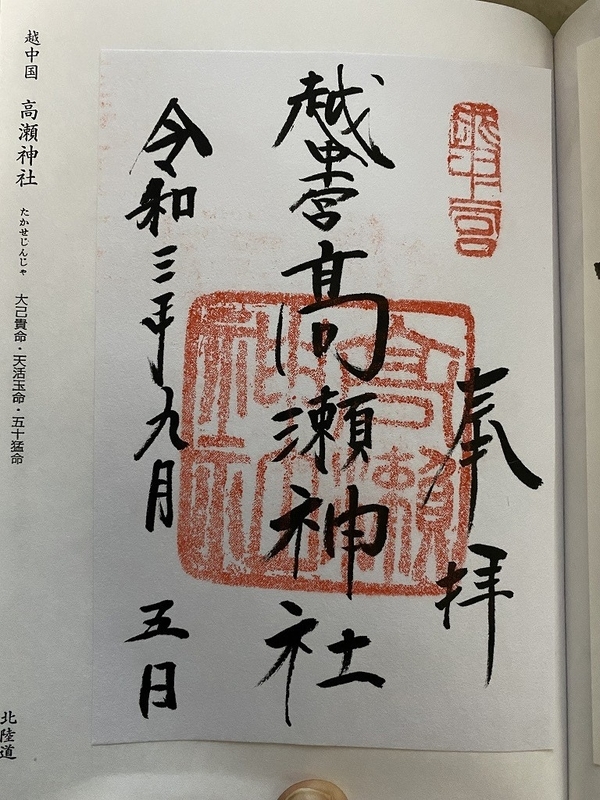 越中一宮
奉拝
越中一宮 高瀬神社
高瀬神社
令和三年九月五日
越中国 高瀬神社 たかせじんじゃ 大己貴命・天活玉命・五十猛命
北陸道